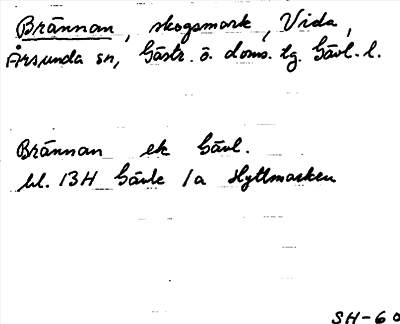 Brännan, skogsmark, Vida,
Årsunda sn, Gästr. ö. doms. tg. Gävl. l.
Brännan ek Gävl.
bl. 13H Gävle 1a Hyttmarken
SH-60